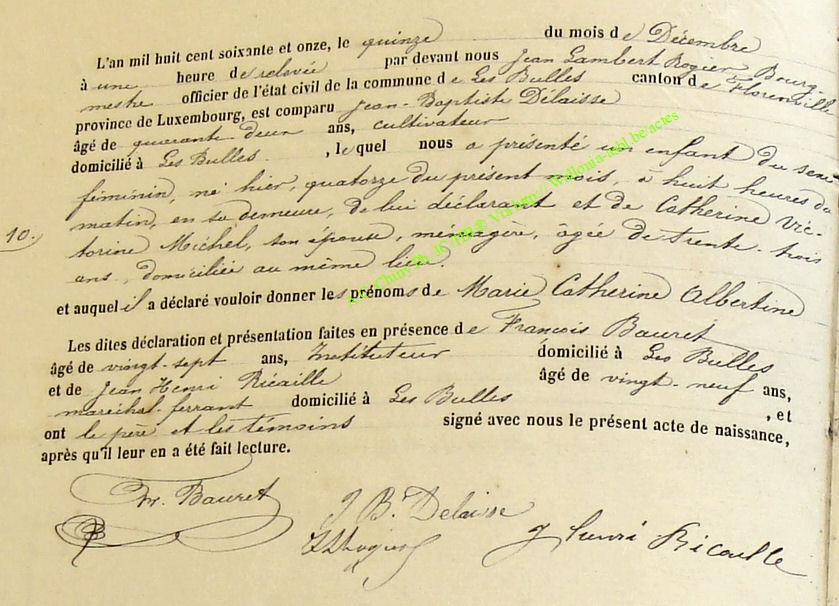 L'an mil huit cent soixante et onze, le quinze du mois de Décembre
à une heure de relevée par devant nous Jean Lambert Rogier Bourg-
mestre officier de l'état civil de la commune de Les Bulles canton de Florenville
province de Luxembourg, est comparu Jean-Baptiste Délaisse
âgé de quarante deux ans, cultivateur
domicilié à Les Bulles. , lequel nous a présenté un enfant du sexe
féminin, né hier, quatorze du présent mois, à huit heures du
matin, en sa demeure, de lui déclarant et de Catherine Vic-
10.
torine Michel, son épouse, ménagère, agée de trente-trois
ans, domiciliée au même lieu.
et auquel il a déclaré vouloir donner les prénoms de Marie Catherine Albertine
Les dites déclaration et présentation faites en présence de François Bauret
âgé de vingt-sept ans, Instituteur domicilié à Les Bulles
et de Jean Henri Ricaille âgé de vingt-neuf ans,
maréchal-ferrant domicilié à Les Bulles , et
ont le père et les témoins signé avec nous le présent acte de naissance,
après qu'il leur en a été fait lecture.
Fr. Bauret
J B. Delaisse
J Henri Ricaille